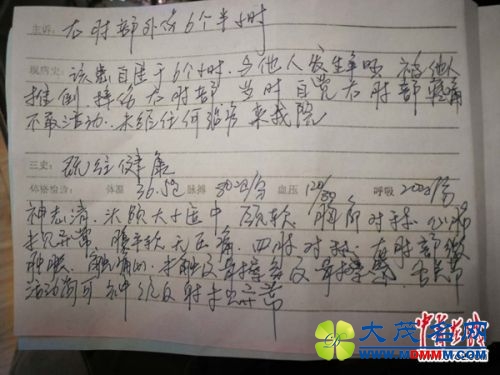 主诉：右肘部外伤6个半小时
现病史：该患自述于6个小时，与他人发生争吵 被他人
推倒，摔伤右肘部 当时自觉右肘部疼痛
不敢活动，未经任何治疗 来我院
三史：既往健康
体格检查： 体温 36.5℃ 脉搏 次/分 血压 120/ 呼吸 20次/分
神志清，头颅大小正中 颈软 胸廓对称，心肺
未见异常，腹平软 无压痛，四肢对称，右肘部微
肿胀， 未触及骨擦音及骨擦感，各关节
活动尚可 神经反射未见异常
大茂名网
www.MDMMM.com